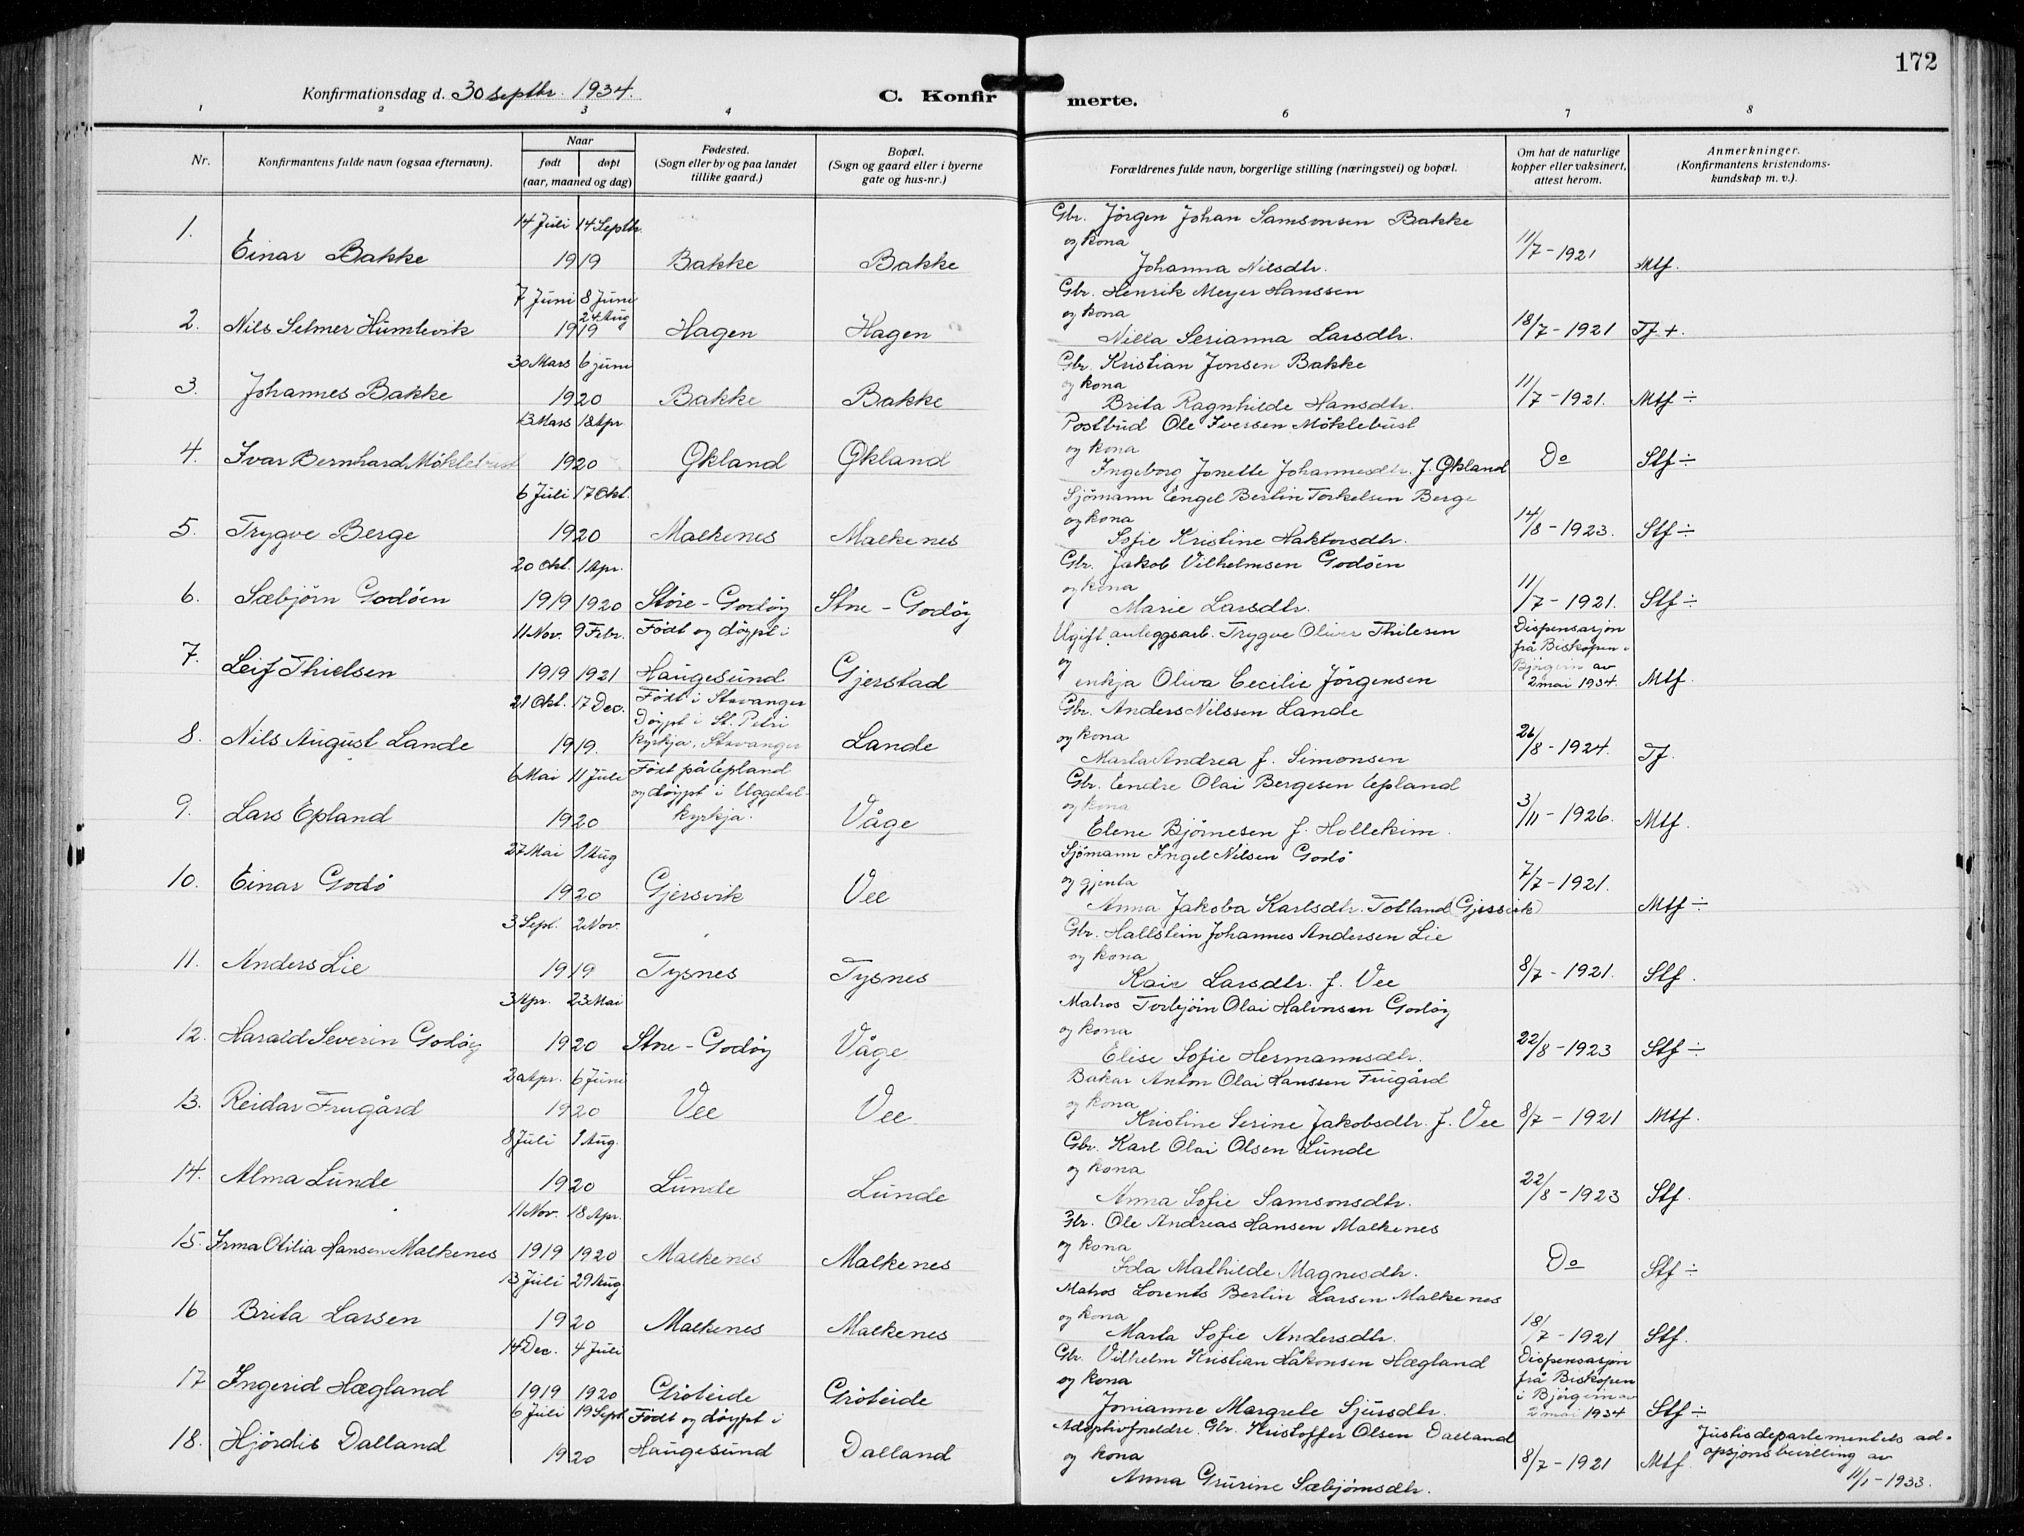 172
Konfirmationsdag d. 30 septbr. 1934.
C. Konfirmerte.
1 2 3 4 6 7 8
Nr.
Konfirmantens fulde navn (ogsaa efternavn).
Naar
født døpt
(aar, maaned og dag)
Fødested.
(Sogn eller by og paa landet
tillike gaard.)
Bopæl.
(Sogn og gaard eller i byerne
gate og hus-nr.)
Forældrenes fulde navn, borgerlige stilling (næringsvei) og bopæl.
Om hat de naturlige
kopper eller vaksinert,
attest herom.
Anmerkninger.
(Konfirmantens kristendoms-
kundskap m. v.).
14 Juli 14 Septbr. Gbr. Jörgen Johan Samsonsen Bakke
1. og kona
Einar Bakke 1919 Bakke Bakke Johanna Nilsdtr. 11/7 - 1921 Mtf.
7 Juni 8 Juni Gbr. Henrik Meyer Hanssen
24 Aug og kona
2. Nils Selmer Humlevik 1919 Hagen Hagen Nilla Serianna Larsdtr. 18/7 - 1921 Tf +.
30 Mars 6 juni Gbr. Kristian Jonsen Bakke
og kona
3. Johannes Bakke 1920 Bakke Bakke Brita Ragnhilde Hansdtr. 11/7 - 1921. Mtf ÷
13 Mars 18 Apr Postbud Ole Iversen Möklebust
og kona
4. Ivar Bernhard Möklebust 1920 Økland Økland Ingeborg Jonette Johannesdtr. f. Økland Do Stf ÷
6 Juli 17 Okt. Sjömann Engel Berlin Torkelsen Berge
og kona
5. Trygve Berge 1920 Malkenes Malkenes Sofie Kristine Haktorsdtr. 14/8 - 1923. Stf ÷
20 Okt. 1 Apr. Gbr. Jakob Vilhelmsen Godöen
og kona
6. Sæbjörn Godöen 1919 1920 Store - Godöy Store - Godöy Marie Larsdtr. 11/7 - 1921. Stf ÷
11 Nov. 9 Febr. Födt og döypt i Ugift anleggsarb. Trygve Oliver Thilesen Dispensasjon
og frå Biskopen i
7. Leif Thielsen 1919 1921 Haugesund Gjerstad enkja Oliva Cecilie Jörgensen Björgvin av
2 mai 1934. Mtf.
21 Okt. 17 Dec. Födt i Stavanger Gbr. Anders Nilssen Lande
Döypt i St. Petri og kona
8. Nils August Lande 1919. kyrkja, Stavanger Lande Marta Andrea f. Simonsen 26/8 - 1924. Tf.
6 Mai 11 Juli Födt på Epland Gbr. Endre Olai Bergesen Epland
og döypt i Uggdal- og kona
9. Lars Epland 1920 kyrkja. Våge Elene Björnesen f. Hollekim. 3/11 - 1926. Mtf.
27 Mai 1 Aug Sjömann Ingel Nilsen Godö
og gjenta
10. Einar Godö 1920 Gjersvik Vee Anna Jakoba Karlsdtr. Totland (Gjersvik) 7/7 - 1921. Mtf ÷
3 Sept. 2 Nov. Gbr. Hallstein Johannes Andersen Lie
og kona
11. Anders Lie 1919 Tysnes Tysnes Kari Larsdtr. f. Vee 8/7 - 1921. Stf.
3 Apr. 23 Mai Matros Torbjörn Olai Halvorsen Godöy
og kona
12. Harald Severin Godöy 1920 Store - Godöy Våge Elise Sofie Hermannsdtr. 22/8 - 1923 Stf ÷
2 Apr. 6 Juni Bakar Anton Olai Hanssen Frugård
og kona
13. Reidar Frugård 1920 Vee Vee Kristine Serine Jakobsdtr. f. Vee 8/7 - 1921 Mtf.
8 Juli 1 Aug. Gbr. Karl Olai Olsen Lunde
og kona
14. Alma Lunde 1920 Lunde Lunde Anna Sofie Samsonsdtr. 22/8 - 1923 Stf.
11 Nov. 18 Apr. Gbr. Ole Andreas Hansen Malkenes
og kona
15. Irma Otilia Hansen Malkenes 1919 1920 Malkenes Malkenes Ida Mathilde Magnesdtr. Do Stf ÷
13 Juli 29 Aug Matros Lorents Berlin Larsen Malkenes
og kona
16 Brita Larsen 1920 Malkenes Malkenes Marta Sofie Andersdtr. 18/7 - 1921 Stf.
14 Dec. 4 Juli Gbr. Vilhelm Kristian Håkonsen Hægland Dispensasjon
og kona frå Biskopen
17 Ingerid Hægland 1919 1920 Gröteide Gröteide Jonianne Margrete Sjursdtr. i Björgvin av
2 mai 1934 Stf ÷
6 Juli 19 Sept Födt og döypt i Adoptivforeldre. Gbr. Kristoffer Olsen Dalland Justisdepartementets ad-
og kona opsjonsbevilling av
18. Hjördis Dalland 1920 Haugesund Dalland Anna Grurine Sæbjörnsdtr. 8/7 - 1921 Mtf. 11/1 - 1933.